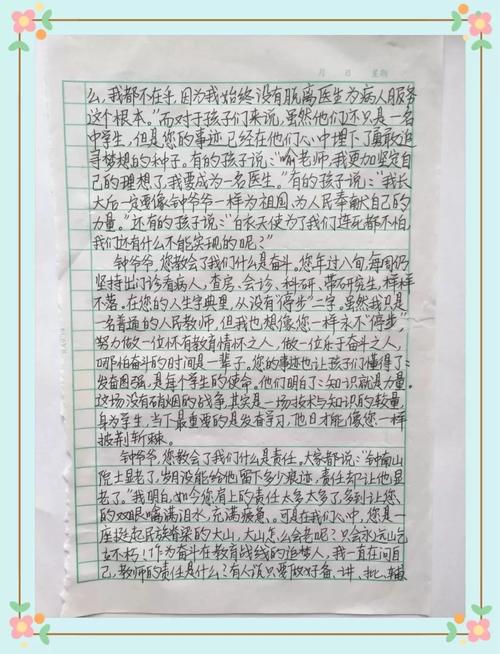 月 日 星期
么,我都不在乎,因为我始终没有脱离医生为病人服务
这个根本。"而对于孩子们来说,虽然他们还只是一名
中学生,但是您的事迹已经在他们心中埋下了勇敢追
寻梦想的种子。有的孩子说:"喻老师,我更加坚定自
己的理想了,我要成为一名医生。"有的孩子说:"我长
大后一定要像钟爷爷一样为祖国、为人民奉献自己的
力量。"还有的孩子说:"白衣天使为了我们连死都不怕,
我们还有什么不能实现的呢?"
钟爷爷,您教会了我们什么是奋斗。您年过八旬,每周仍
坚持出门诊看病人,查房、会诊、科研、带研究生,样样
不落。在您的人生字典里,从没有"停步"二字。虽然我只是
一名普通的人民教师,但我也想像您一样永不"停步",
努力做一位怀有教育情怀之人,做一位乐于奋斗之人,
哪怕奋斗的时间是一辈子。您的事迹也让孩子们懂得了:
发奋图强,是每个学生的使命。他们明白了:知识就是力量。
这场没有硝烟的战争,其实是一场技术与知识的较量,
身为学生,当下最重要的是发奋学习,他日才能像您一样
披荆斩棘。
钟爷爷,您教会了我们什么是责任。大家都说:"钟南山
院士显老了,岁月没能给他留下多少痕迹,责任却让他显
老了。"我明白,如今您肩上的责任太多太多了,多到让您
的双眼噙满泪水,充满疲惫。可是在我们心中,您是一
座挺起民族脊梁的大山,大山怎么会老呢?只会永远屹
立不朽!作为奋斗在教育战线的追梦人,我一直在问自
己,教师的责任是什么?有人说只要做好备、讲、批、辅